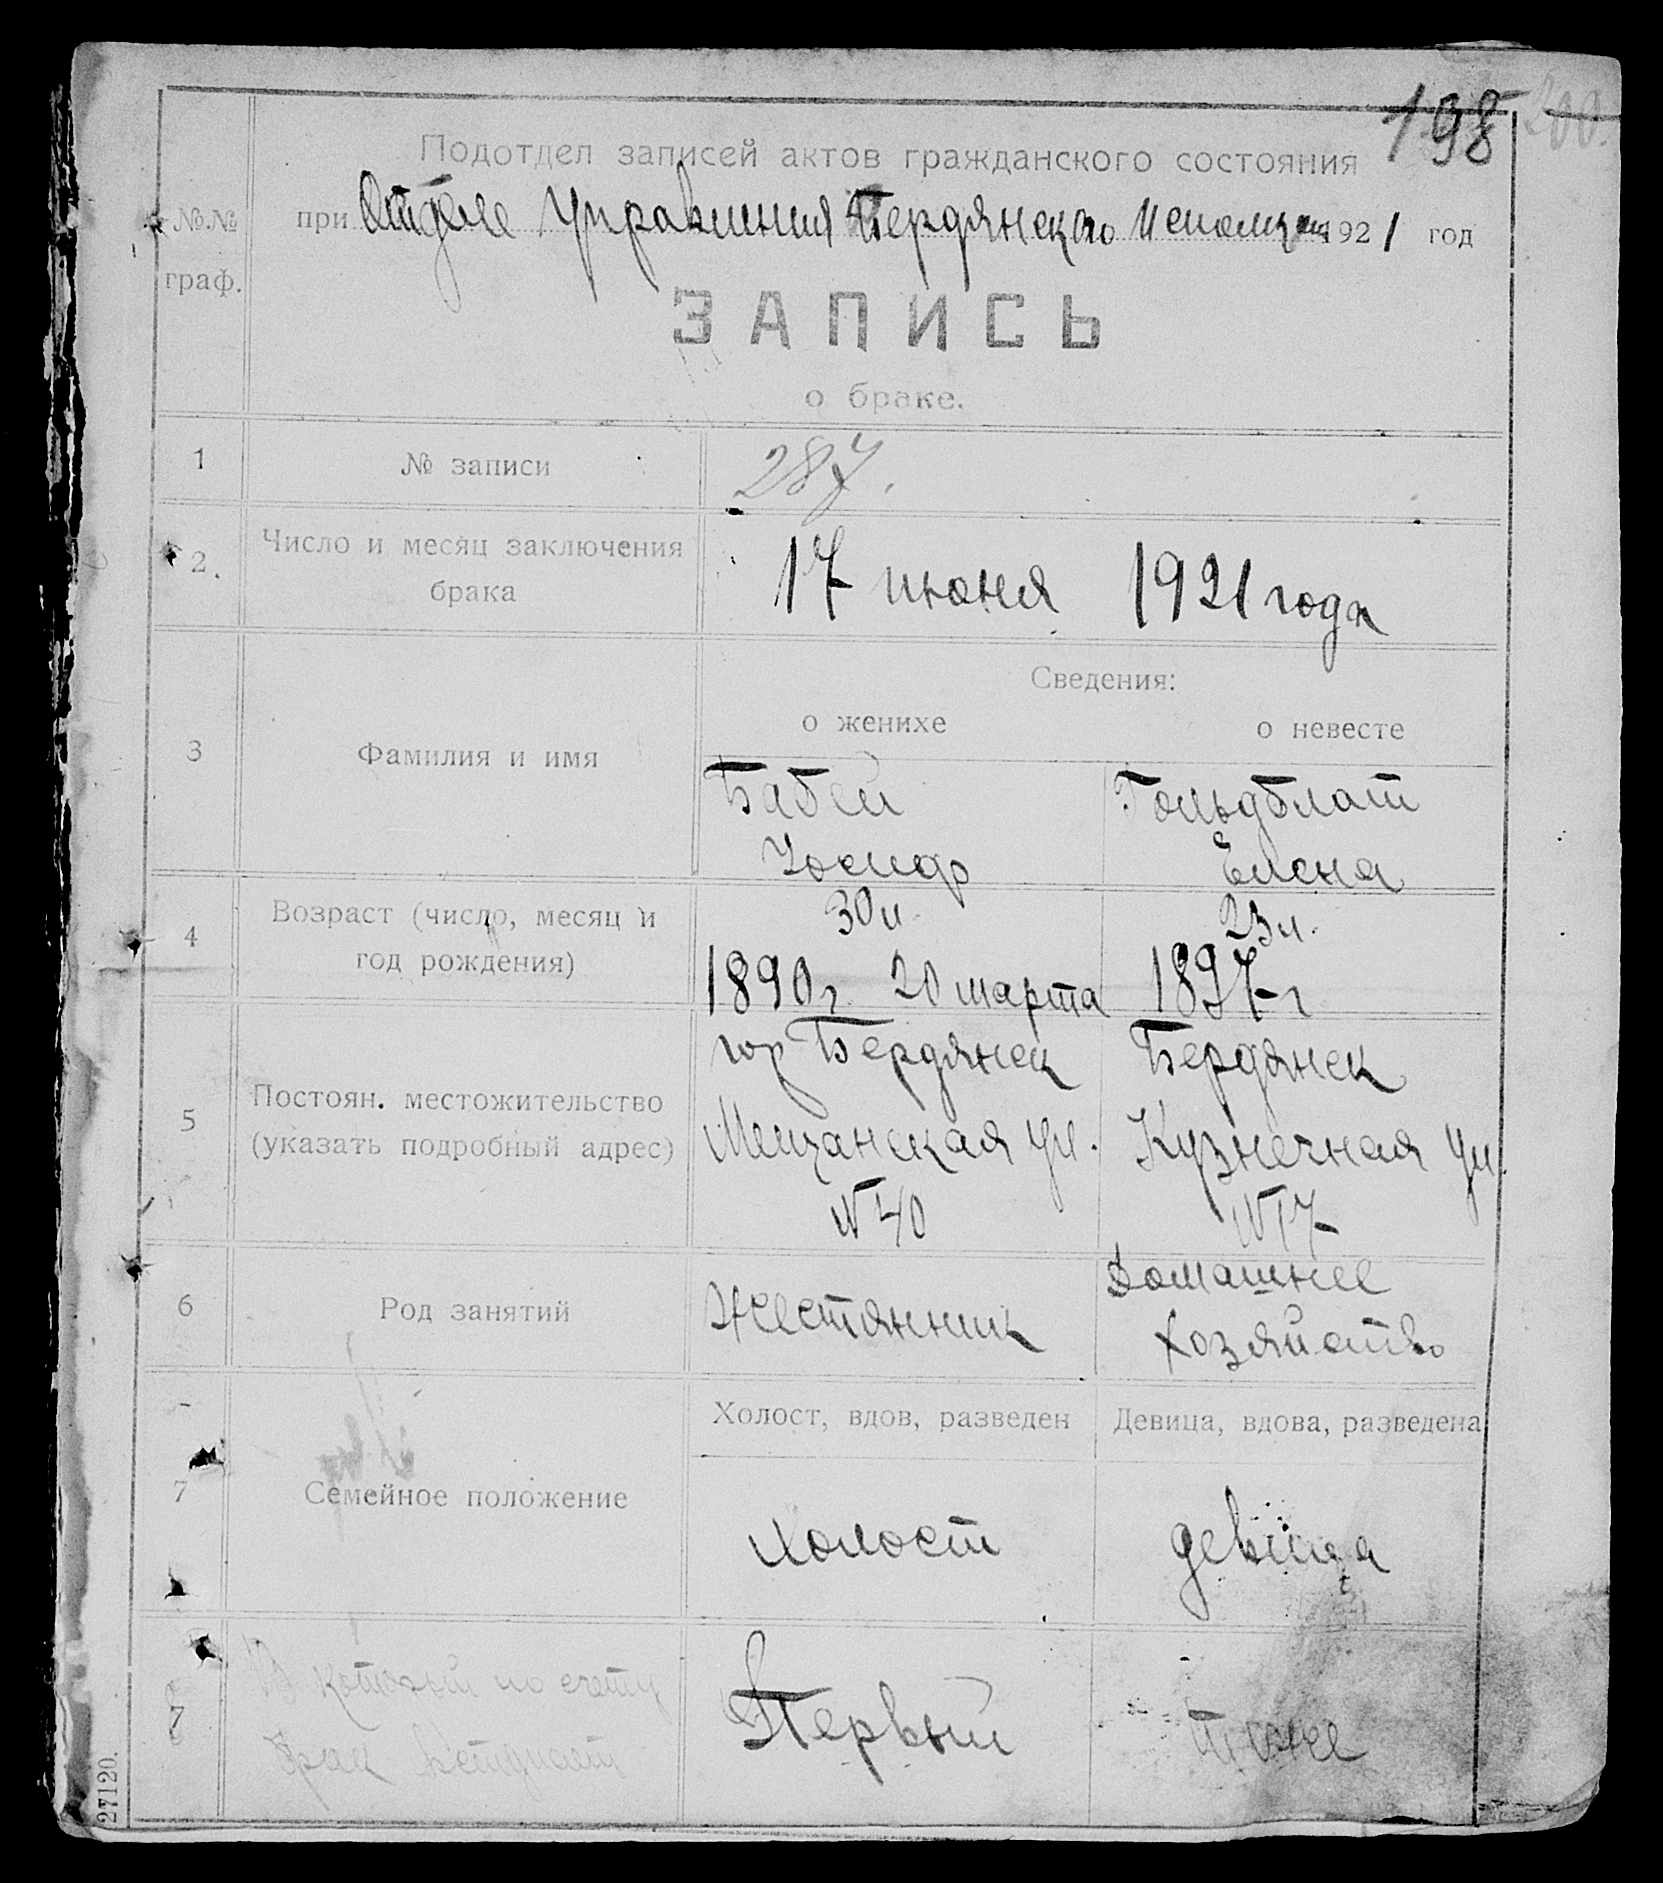 198 200.
Подотдел записей актов гражданского состояния
№№ при Отделе Управления Бердянского Исполком 1921 год
граф.
ЗАПИСЬ
о браке.
1 № записи 287.
2. Число и месяц заключения
брака
17 июня 1921 года
Сведения:
о женихе о невесте
3 Фамилия и имя
Бабей Гольдблат
Иосиф Елена
4 Возраст (число, месяц и
год рождения)
30 л. 23 л.
1890 г. 20 марта 1897 г
5 Постоян. местожительство
(указать подробный адрес)
гор Бердянск Бердянск
Мещанская ул. Кузнечная ул.
N 40 N 17
6 Род занятий
Жестянник Домашнее
хозяйство
Холост, вдов, разведен Девица, вдова, разведена
7 Семейное положение
холост девица
7 В который по счету
брак вступает
Первый тоже
27120.